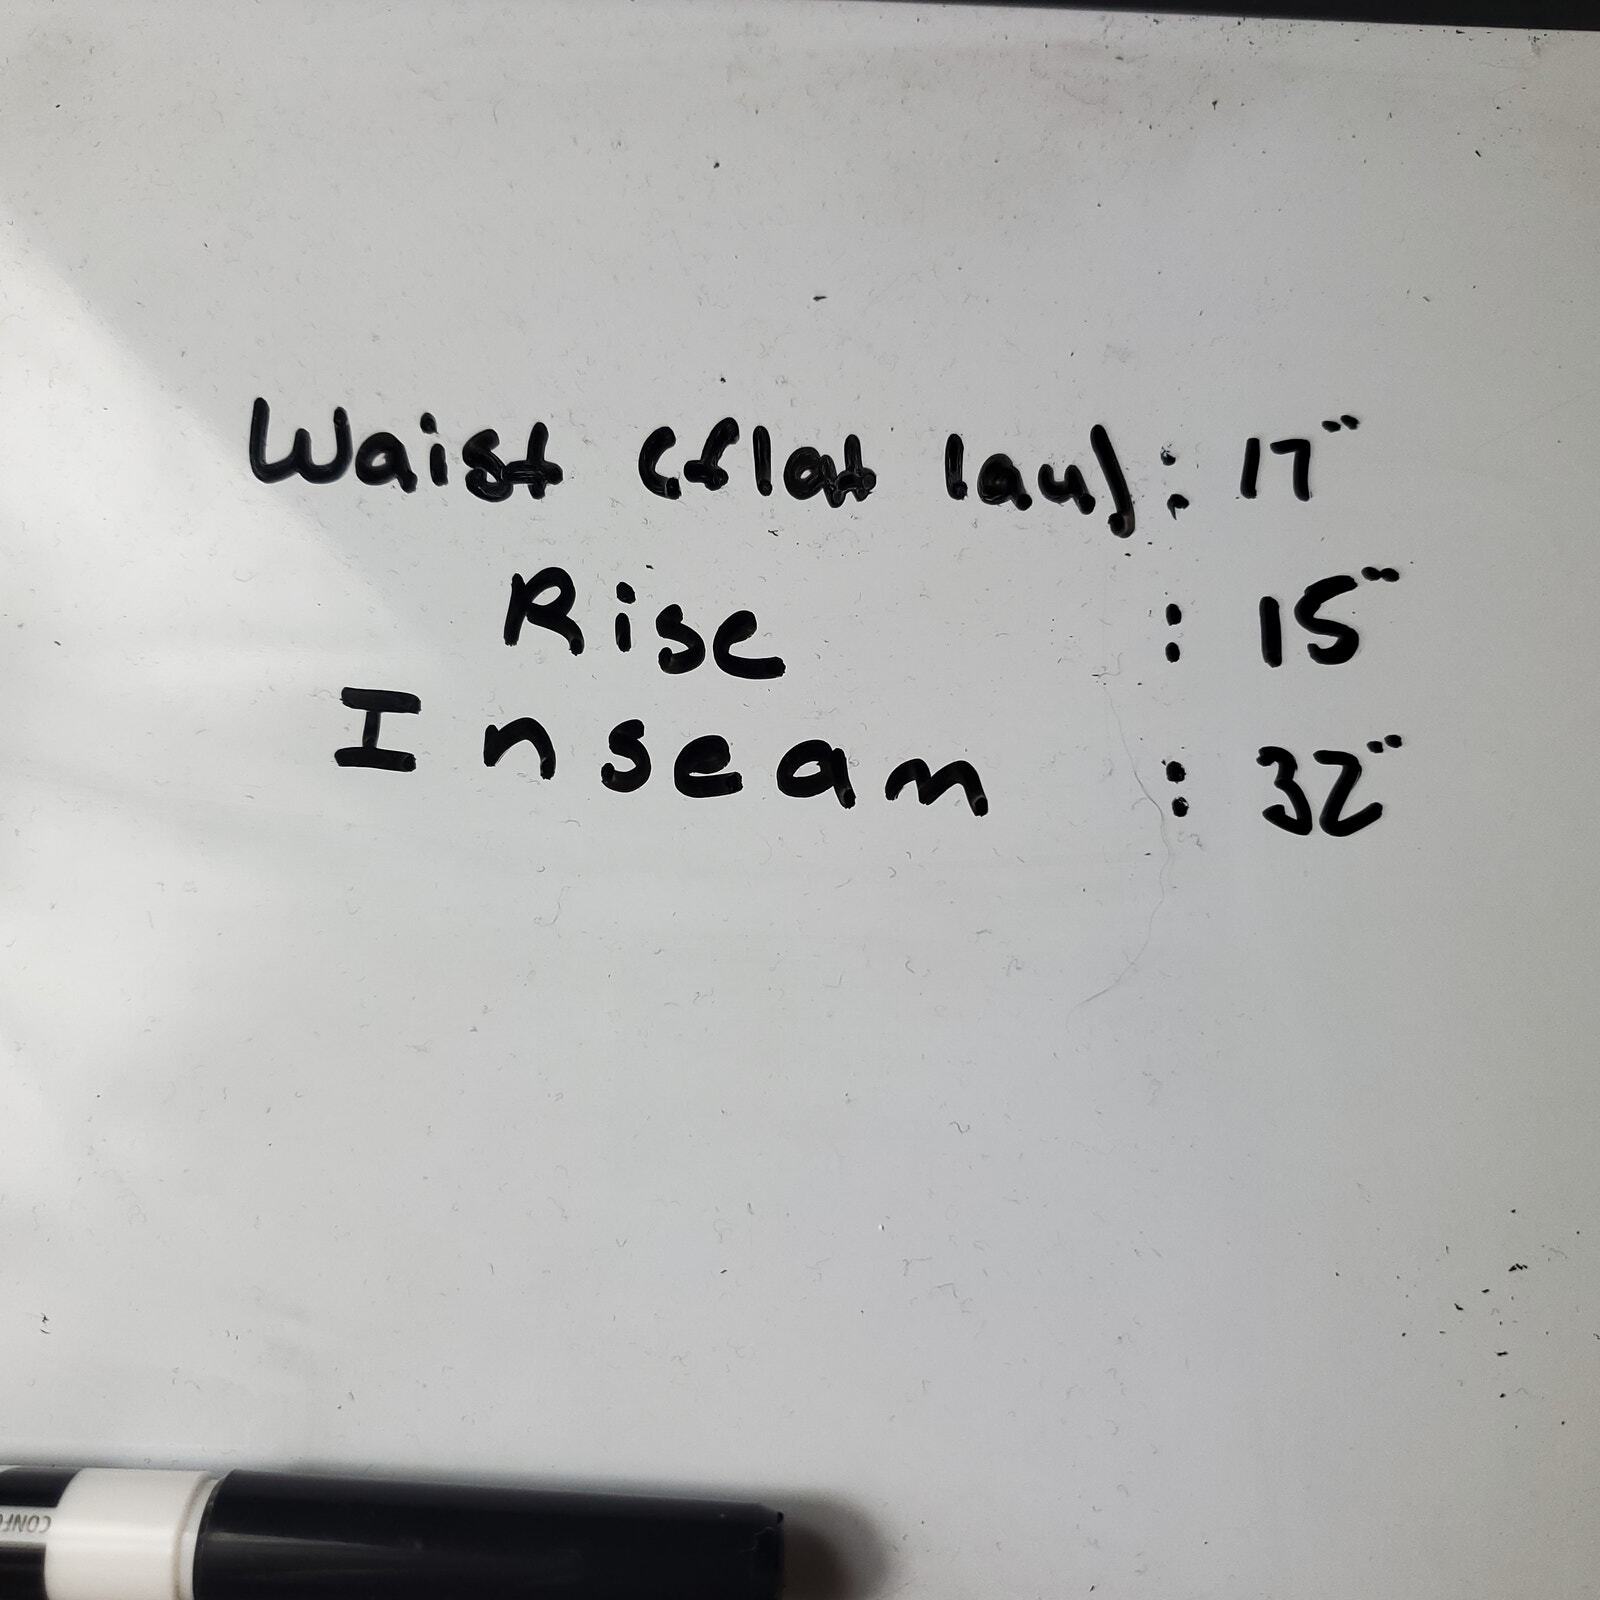 Waist (flat lay) : 17"
Rise : 15"
Inseam : 32"
CONF